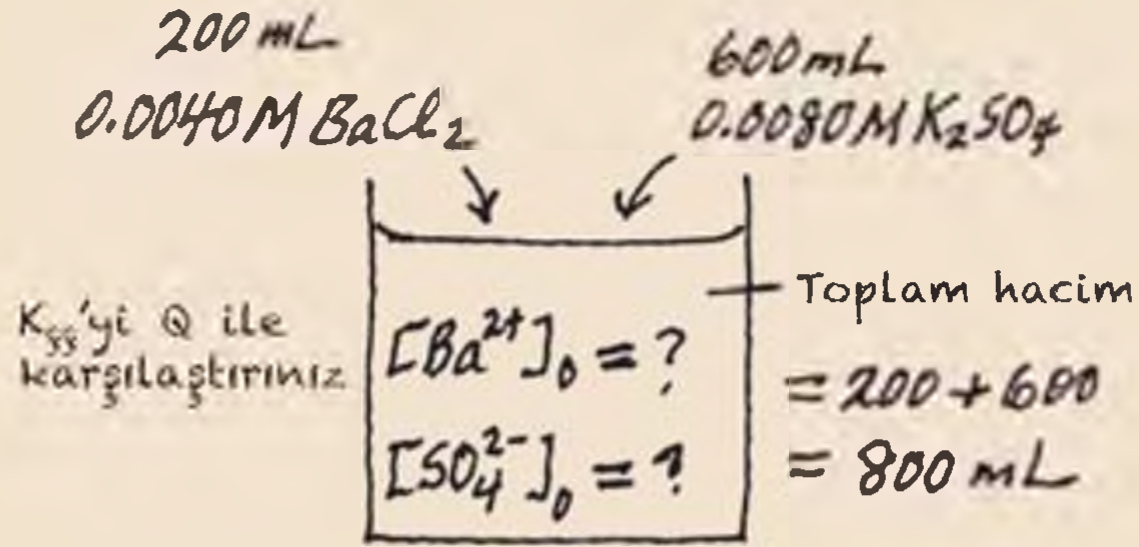 200 mL
0.0040 M BaCl₂
600 mL
0.0080 M K₂SO₄
Kçç'yi Q ile
karşılaştırınız
[Ba²⁺]₀ = ?
[SO₄²⁻]₀ = ?
Toplam hacim
= 200 + 600
= 800 mL